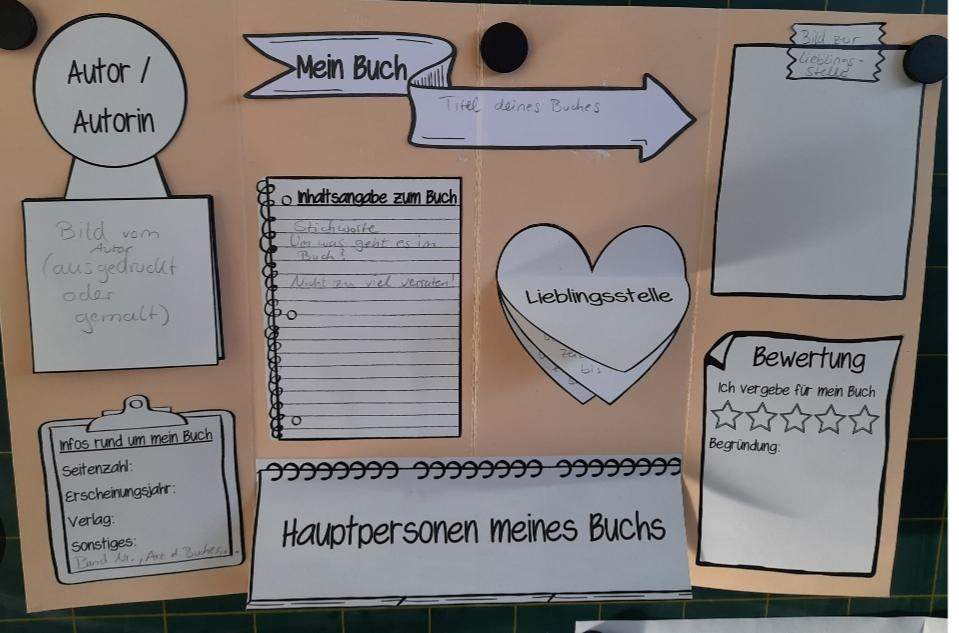 Autor /
Autorin
Bild vom
Autor
(ausgedruckt
oder
gemalt)
Infos rund um mein Buch
Seitenzahl:
Erscheinungsjahr:
Verlag:
Sonstiges:
Band Nr., Art d.
Mein Buch
Titel deines Buches
Inhaltsangabe zum Buch
Stichworte
Um was geht es im
Buch?
Nicht zu viel verraten!
Lieblingsstelle
bis
Hauptpersonen meines Buchs
Bild zur
Lieblings-
stelle
Bewertung
Ich vergebe für mein Buch
Begründung: